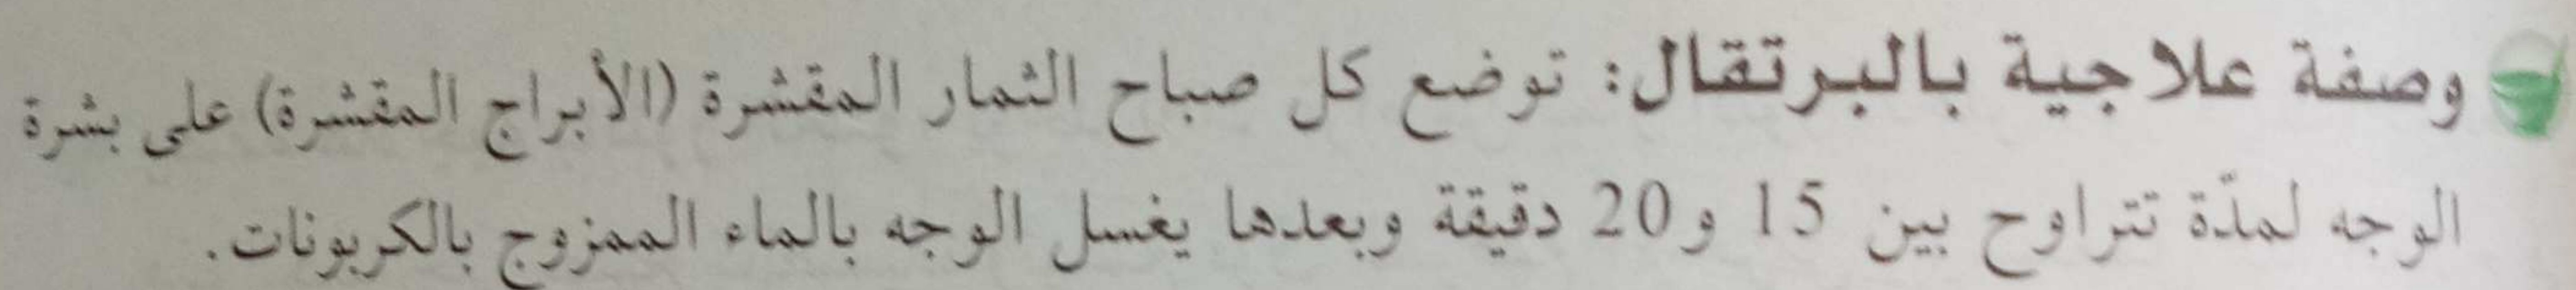 وصفة علاجية بالبرتقال: توضع كل صباح الثمار المقشرة (الأبراج المقشرة) على بشرة
الوجه لمدّة تتراوح بين 15 و20 دقيقة وبعدها يغسل الوجه بالماء الممزوج بالكربونات.